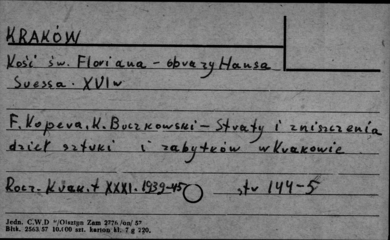 KRAKÓW
Kość św. Floriana - obrazy Hansa
Suessa. XVI w
F. Kopera, K. Buczkowski - Straty i zniszczenia
dzieł sztuki i zabytków w Krakowie
Rocz. Krak. t XXXI. 1939-45 str 144-5
Jedn. C.W.D Olsztyn Zam 2776 /on/ 57
Bltk. 2563.57 10.100 szt. karton kl. 7 g 220.